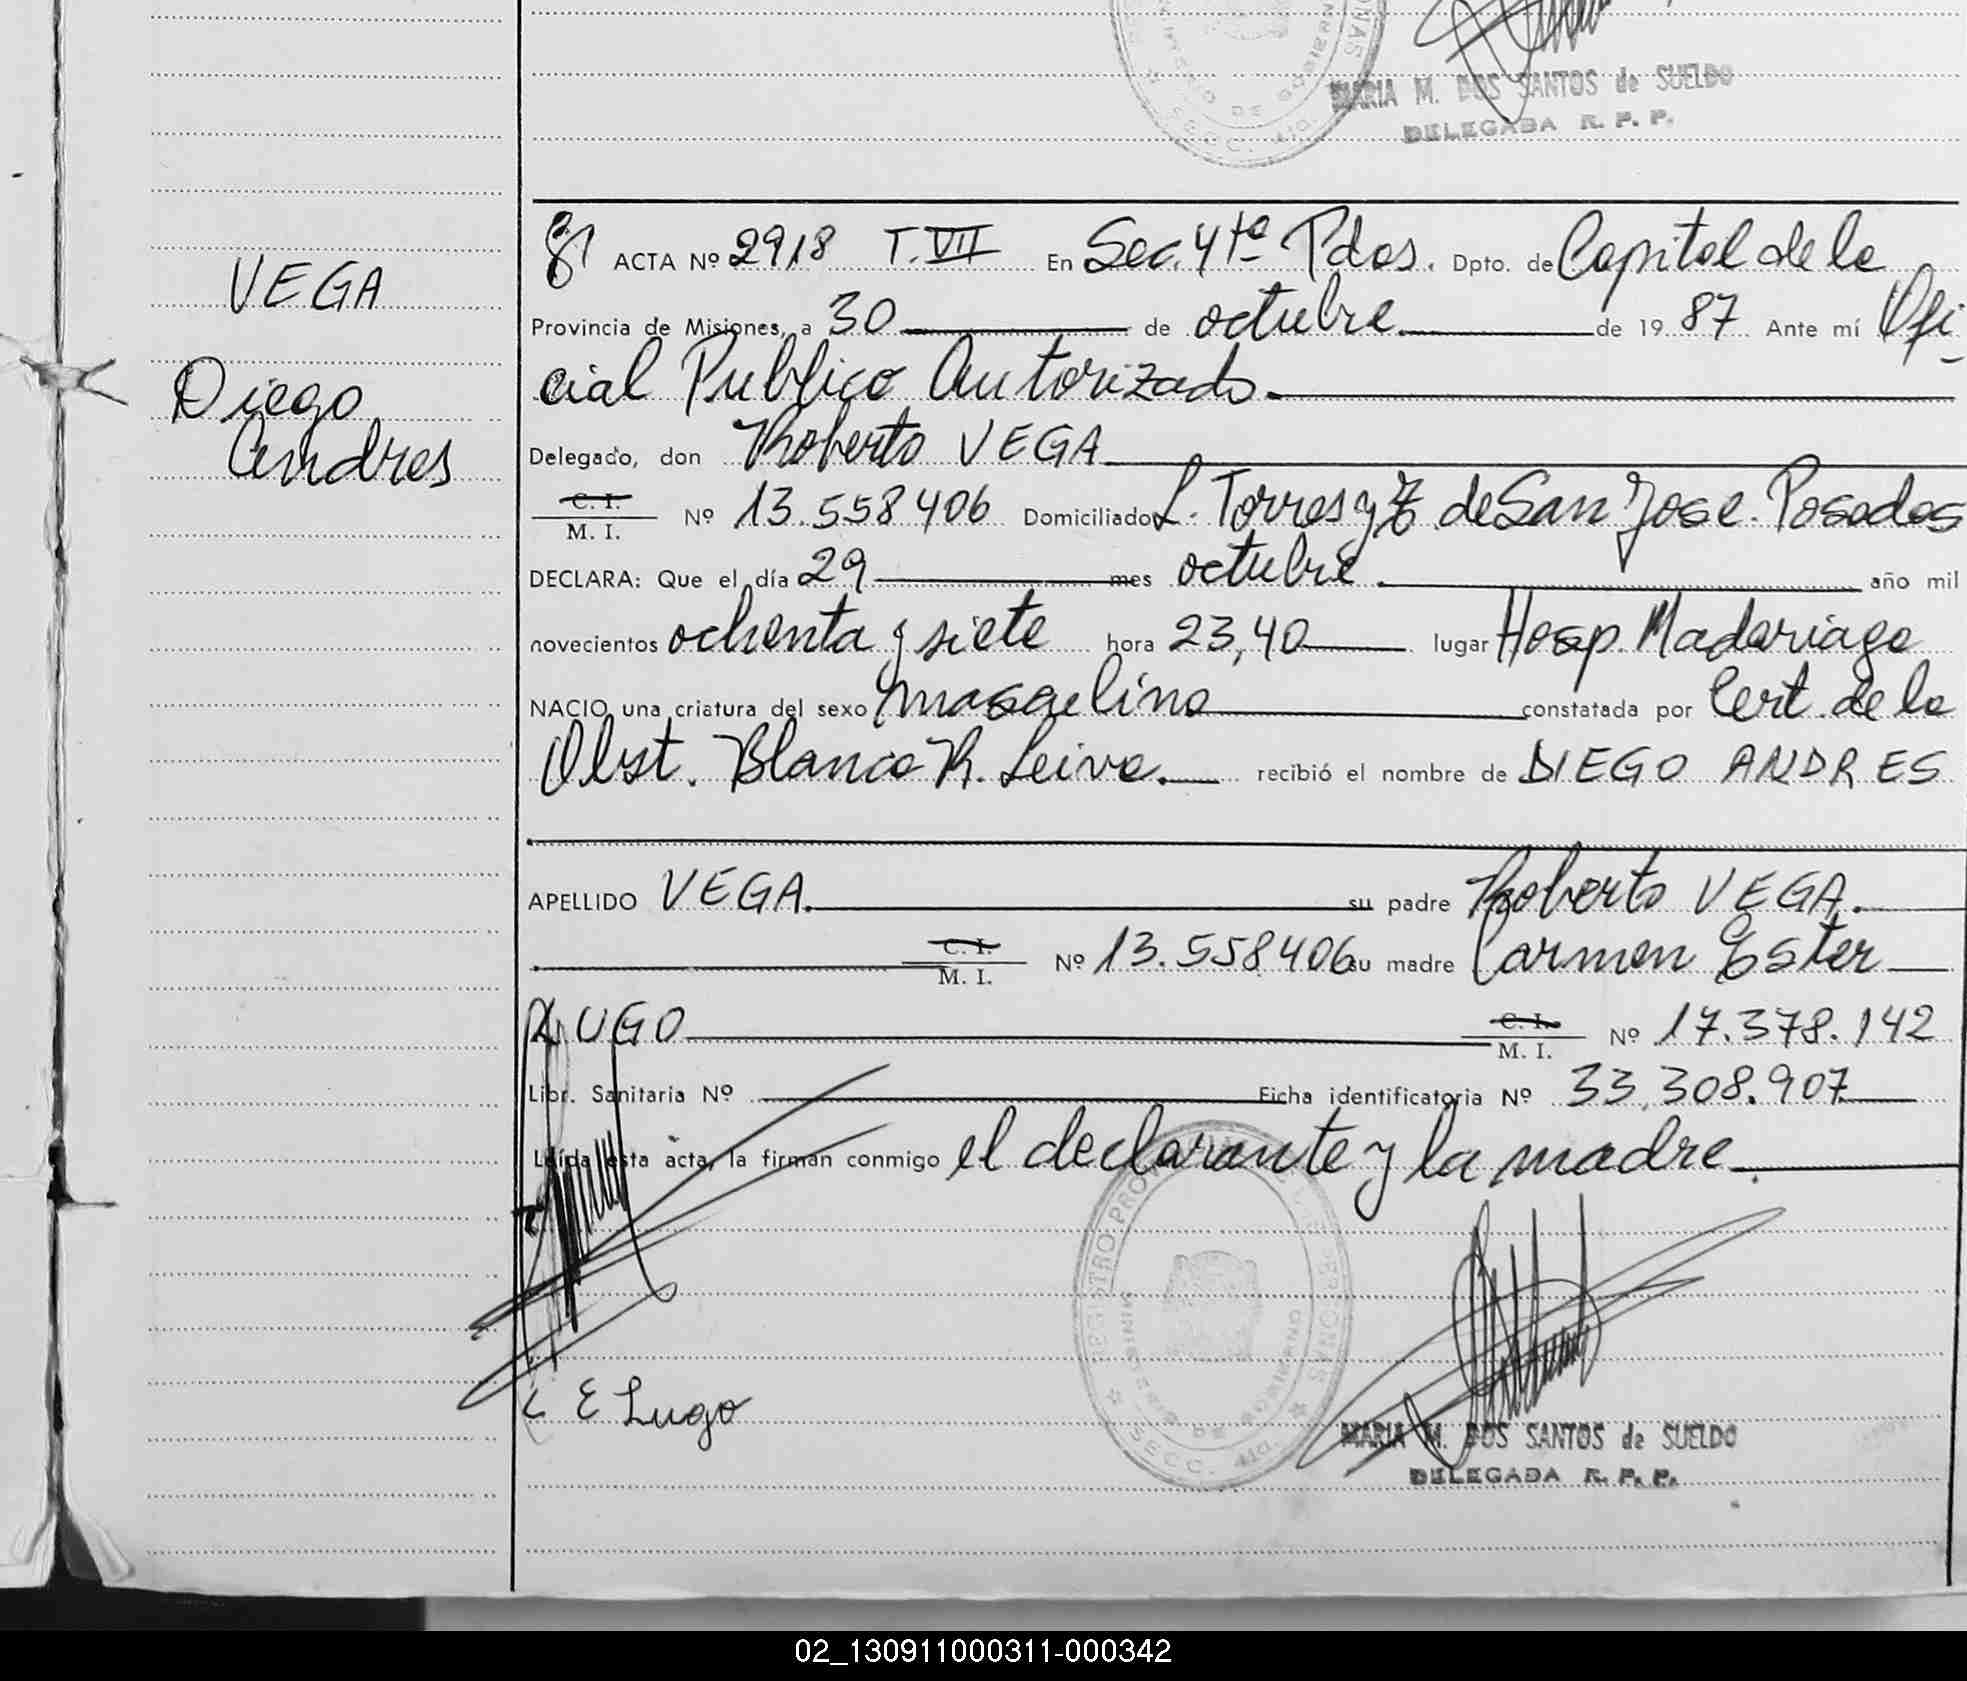 MARIA M. DOS SANTOS de SUELDO
DELEGADA R. P. P.
VEGA
Diego
Andres
ACTA Nº 2918 T. VII En Sec. 4ta Pdas. Dpto. de Capital de la
Provincia de Misiones, a 30 de octubre de 1987 Ante mí Ofi-
cial Publico Autorizado.
Delegado, don Roberto VEGA
C. I.
M. I. Nº 13.558406 Domiciliado L. Torres y Z de San Jose. Posadas
DECLARA: Que el día 29 mes octubre año mil
novecientos ochenta y siete hora 23,40 lugar Hosp. Madariaga
NACIO una criatura del sexo masculino constatada por Cert. de la
Obst. Blanca R. Leiva. recibió el nombre de DIEGO ANDRES
APELLIDO VEGA. su padre Roberto VEGA.
C. I.
M. I. Nº 13.558.406 su madre Carmen Ester
LUGO C. I.
M. I. Nº 17.378.142
Libr. Sanitaria Nº Ficha identificatoria Nº 33.308.907
Leída esta acta, la firman conmigo el declarante y la madre.
REGISTRO PROV DE LAS PERSONAS
MINISTERIO DE GOBIERNO
SECC. 4ta.
C E Lugo
MARIA M. DOS SANTOS de SUELDO
DELEGADA R. P. P.
02_130911000311-000342